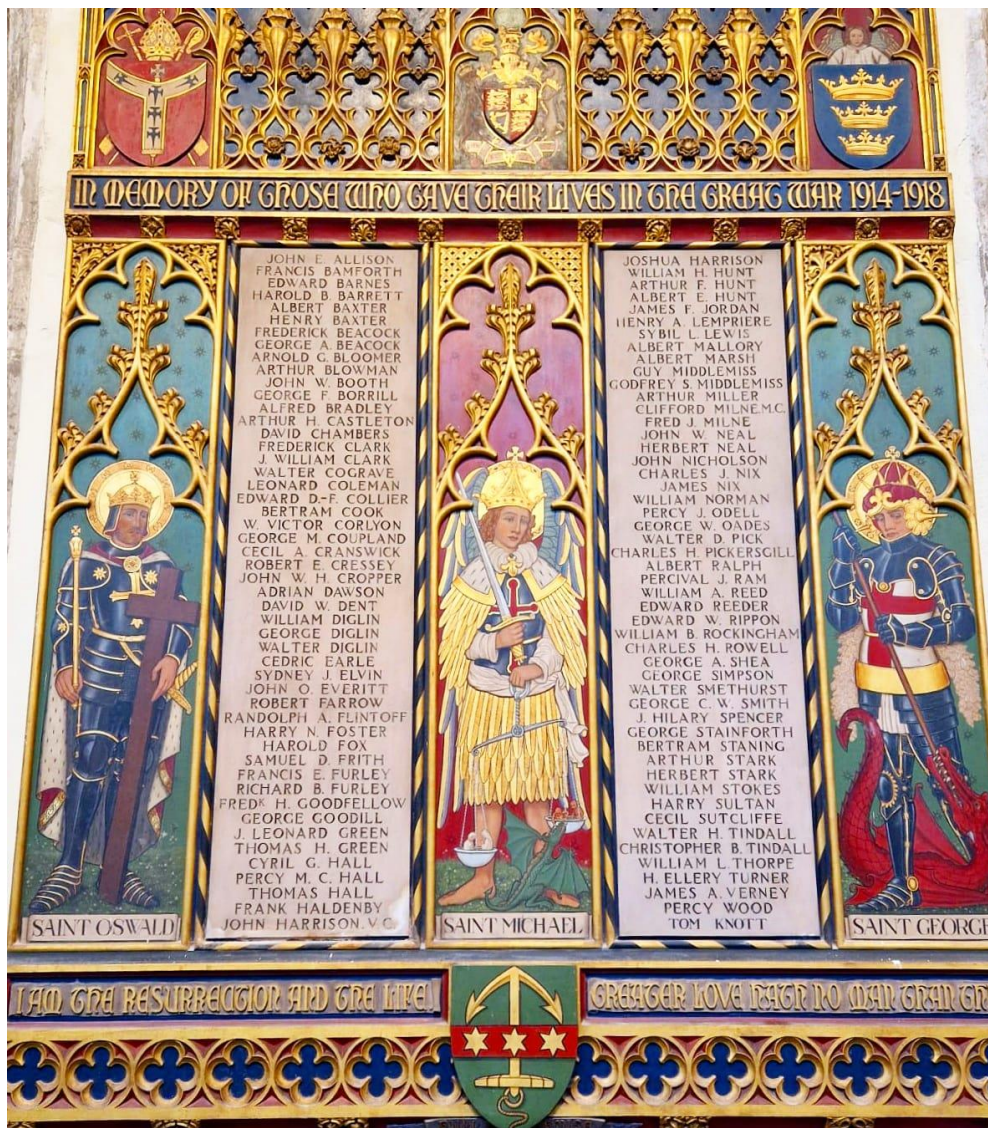 IN MEMORY OF THOSE WHO GAVE THEIR LIVES IN THE GREAT WAR 1914-1918
JOHN E. ALLISON
FRANCIS BAMFORTH
EDWARD BARNES
HAROLD B. BARRETT
ALBERT BAXTER
HENRY BAXTER
FREDERICK BEACOCK
GEORGE A. BEACOCK
ARNOLD G. BLOOMER
ARTHUR BLOWMAN
JOHN W. BOOTH
GEORGE F. BORRILL
ALFRED BRADLEY
ARTHUR H. CASTLETON
DAVID CHAMBERS
FREDERICK CLARK
J. WILLIAM CLARK
WALTER COGRAVE
LEONARD COLEMAN
EDWARD D.-F. COLLIER
BERTRAM COOK
W. VICTOR CORLYON
GEORGE M. COUPLAND
CECIL A. CRANSWICK
ROBERT E. CRESSEY
JOHN W. H. CROPPER
ADRIAN DAWSON
DAVID W. DENT
WILLIAM DIGLIN
GEORGE DIGLIN
WALTER DIGLIN
CEDRIC EARLE
SYDNEY J. ELVIN
JOHN O. EVERITT
ROBERT FARROW
RANDOLPH A. FLINTOFF
HARRY N. FOSTER
HAROLD FOX
SAMUEL D. FRITH
FRANCIS E. FURLEY
RICHARD B. FURLEY
FREDK H. GOODFELLOW
GEORGE GOODILL
J. LEONARD GREEN
THOMAS H. GREEN
CYRIL G. HALL
PERCY M. C. HALL
THOMAS HALL
FRANK HALDENBY
JOHN HARRISON. V.C.
JOSHUA HARRISON
WILLIAM H. HUNT
ARTHUR F. HUNT
ALBERT E. HUNT
JAMES F. JORDAN
HENRY A. LEMPRIERE
SYBIL L. LEWIS
ALBERT MALLORY
ALBERT MARSH
GUY MIDDLEMISS
GODFREY S. MIDDLEMISS
ARTHUR MILLER
CLIFFORD MILNE. M.C.
FRED J. MILNE
JOHN W. NEAL
HERBERT NEAL
JOHN NICHOLSON
CHARLES J. NIX
JAMES NIX
WILLIAM NORMAN
PERCY J. ODELL
GEORGE W. OADES
WALTER D. PICK
CHARLES H. PICKERSGILL
ALBERT RALPH
PERCIVAL J. RAM
WILLIAM A. REED
EDWARD REEDER
EDWARD W. RIPPON
WILLIAM B. ROCKINGHAM
CHARLES H. ROWELL
GEORGE A. SHEA
GEORGE SIMPSON
WALTER SMETHURST
GEORGE C. W. SMITH
J. HILARY SPENCER
GEORGE STAINFORTH
BERTRAM STANING
ARTHUR STARK
HERBERT STARK
WILLIAM STOKES
HARRY SULTAN
CECIL SUTCLIFFE
WALTER H. TINDALL
CHRISTOPHER B. TINDALL
WILLIAM L. THORPE
H. ELLERY TURNER
JAMES A. VERNEY
PERCY WOOD
TOM KNOTT
SAINT OSWALD
SAINT MICHAEL
SAINT GEORGE
I AM THE RESURRECTION AND THE LIFE.
GREATER LOVE HATH NO MAN THAN TH